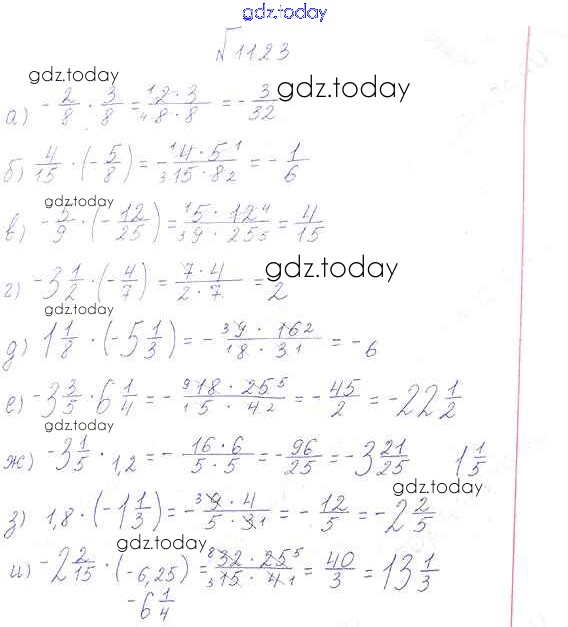 gdz.today
√1123
gdz.today
gdz.today
а) -2/8 · 3/8 = 2·3/8·8 = -3/32
б) 4/15 · (-5/8) = -4·5/15·8 = -1/6
gdz.today
в) -5/9 · (-12/25) = 5·12/9·25 = 4/15
г) -3 1/2 · (-4/7) = 7·4/2·7 = 2
gdz.today
gdz.today
д) 1 1/8 · (-5 1/3) = -9·16/8·3 = -6
е) -3 3/5 · 6 1/4 = -18·25/5·4 = -45/2 = -22 1/2
gdz.today
ж) -3 1/5 · 1,2 = -16·6/5·5 = -96/25 = -3 21/25 1 1/5
gdz.today
з) 1,8 · (-1 1/3) = -9·4/5·3 = -12/5 = -2 2/5
gdz.today
и) -2 2/15 · (-6,25) = 32·25/15·4 = 40/3 = 13 1/3
-6 1/4
gdz.today